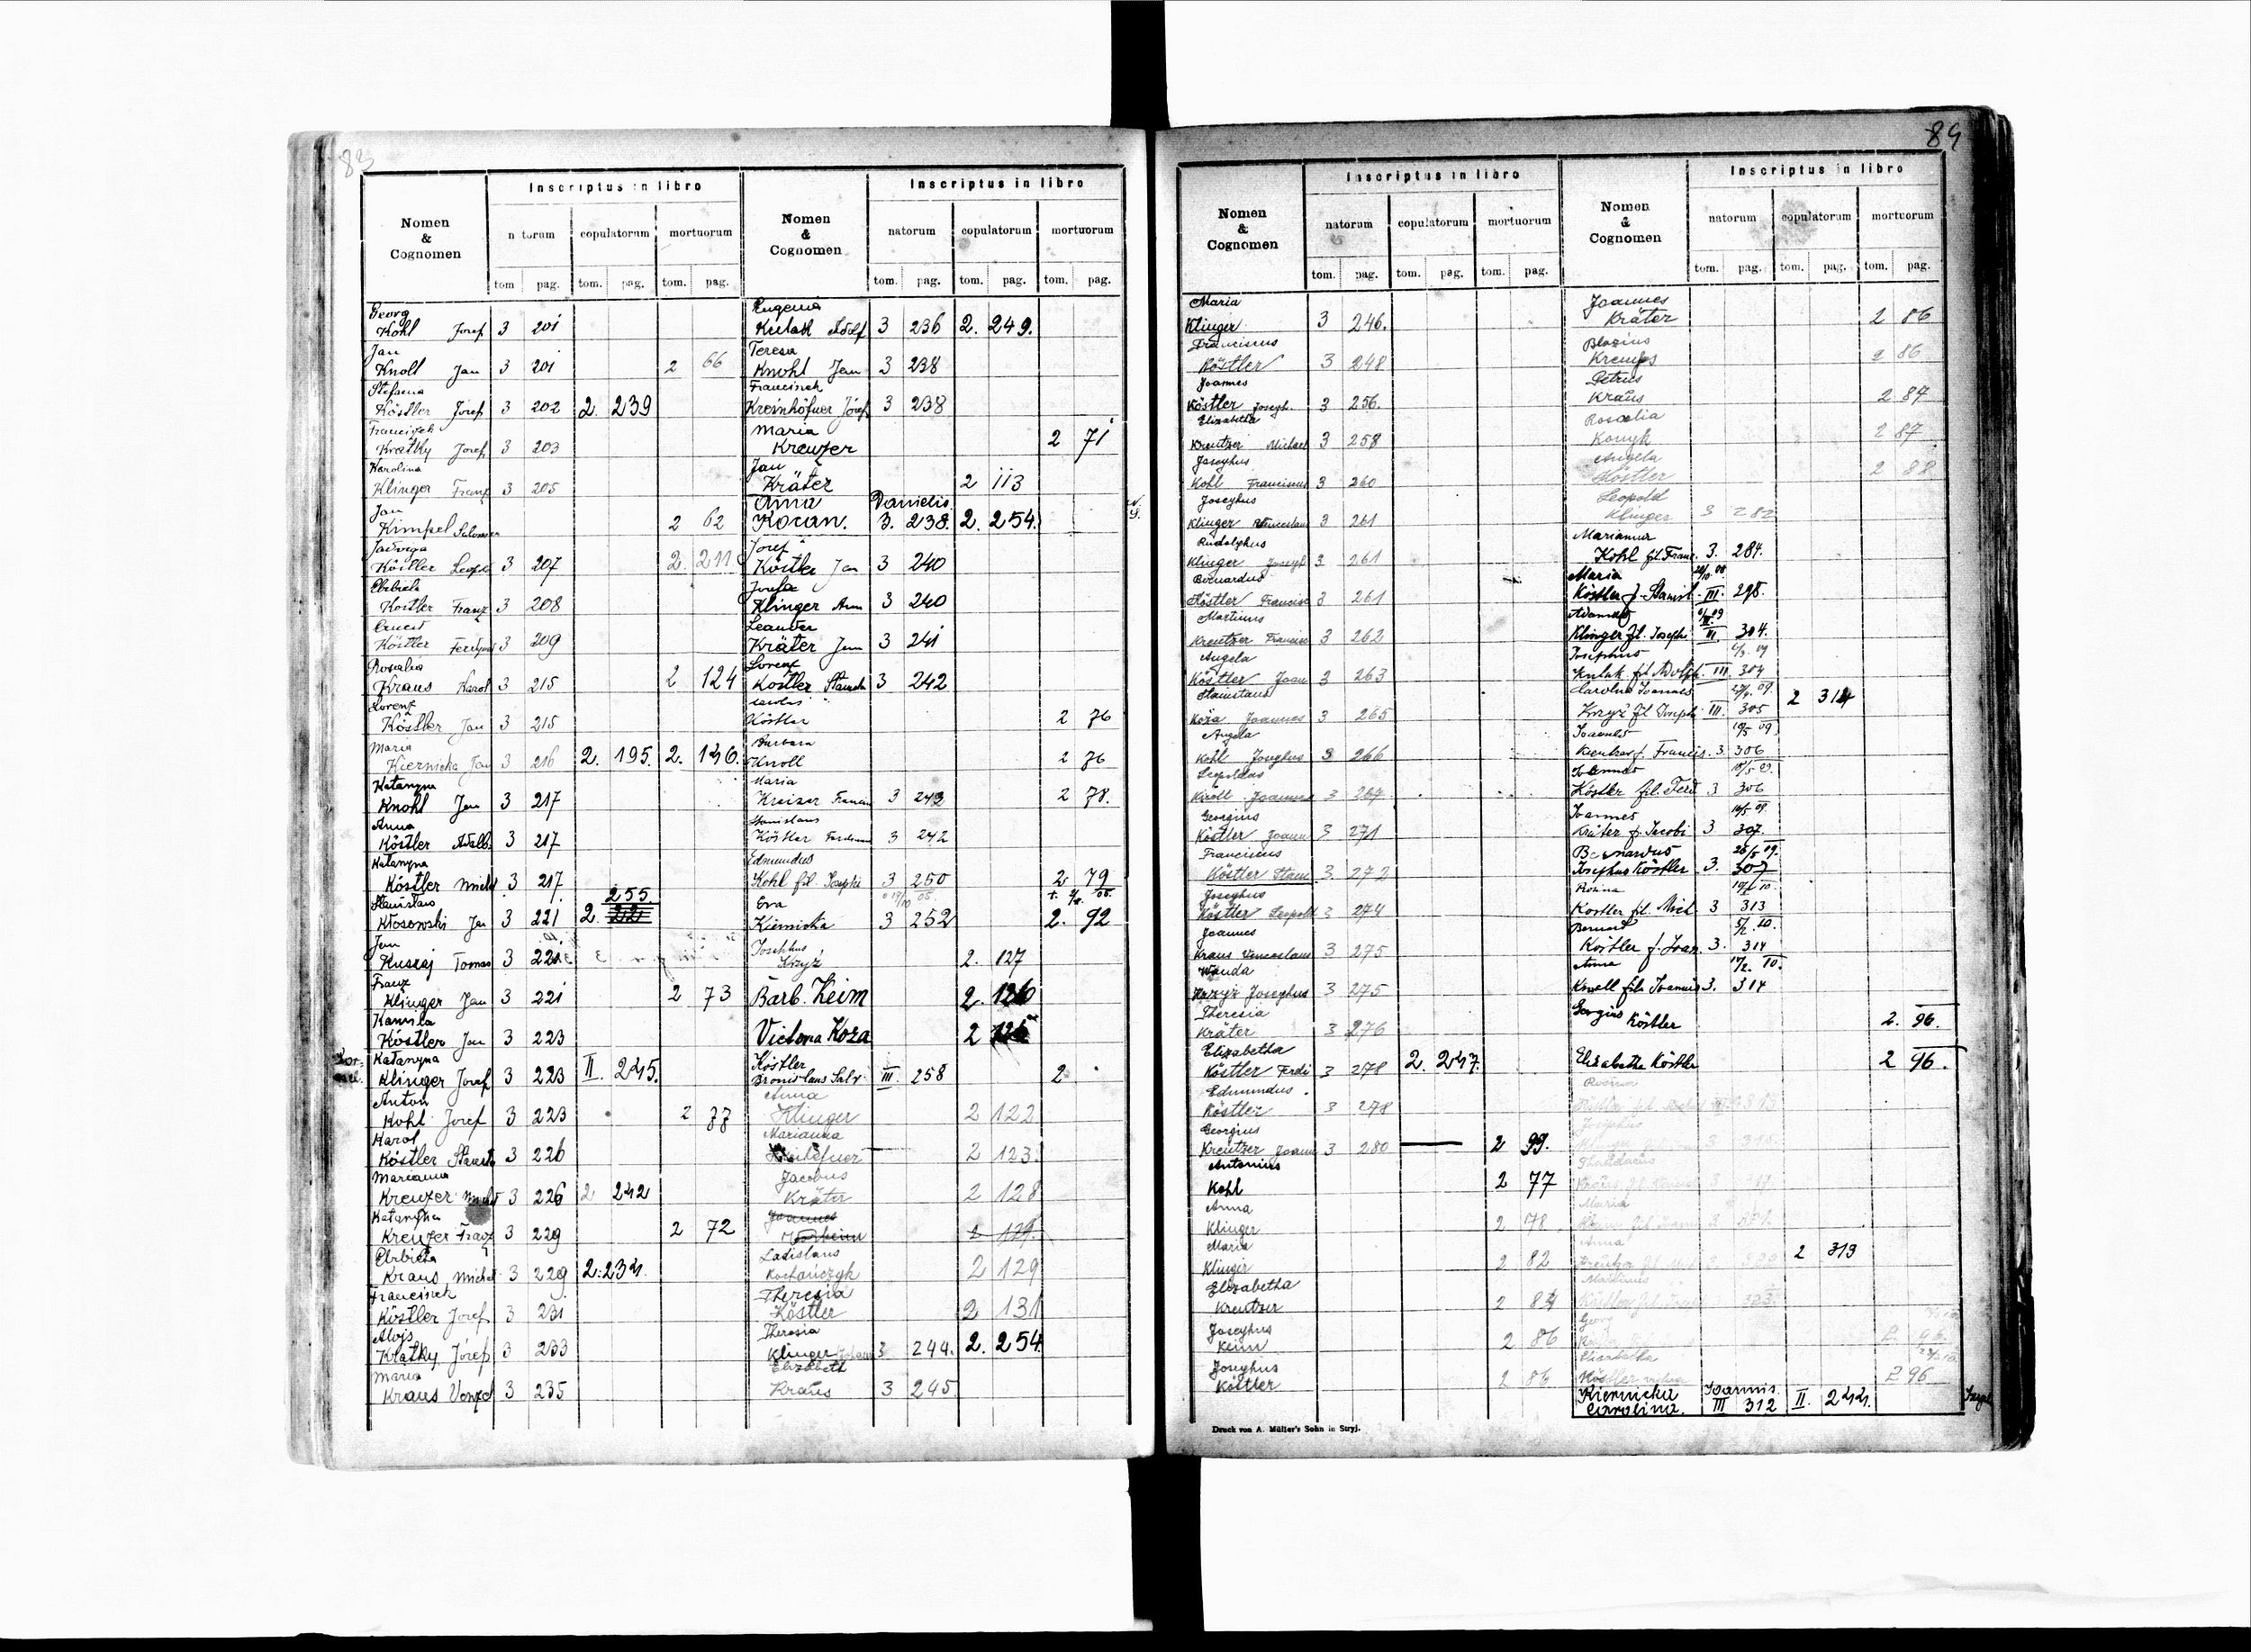 83
Inscriptus in libro
Nomen & Cognomen
natorum copulatorum mortuorum
tom. pag. tom. pag. tom. pag.
Georg
Kohl Josef 3 201
Jan
Knoll Jan 3 201 2 66
Stefania
Köstler Józef 3 202 2. 239
Franciszek
Kratky Josef 3 203
Karolina
Klinger Franz 3 205
Jan
Kimpel Salomea 2 62
Jadwiga
Köstler Leopold 3 207 2. 211
Elżbieta
Köstler Franz 3 208
Ernest
Köstler Ferdynand 3 209
Rosalia
Kraus Karol 3 215 2 124
Lorenz
Köstler Jan 3 215
Maria
Kiernicka Jan 3 216 2. 195. 2. 136.
Katarzyna
Knohl Jan 3 217
Anna
Köstler Adalb. 3 217
Katarzyna
Köstler Michał 3 217
Stanisław 255.
Kłosowski Jan 3 221 2.
Jan
Kuszaj Tomas 3 221
Franz
Klinger Jan 3 221 2 73
Kamila
Köstler Jan 3 223
Katarzyna
Klinger Josef 3 223 II. 245.
Anton
Kohl Josef 3 223 2 77
Karol
Köstler Stanisł 3 226
Marianna
Kreuzer Michał 3 226 2 242
Katarzyna
Kreuzer Franz 3 229 2 72
Elżbieta
Kraus Michał 3 229 2. 234.
Franciszek
Köstler Josef 3 231
Alojs
Kratky Józef 3 233
Maria
Kraus Venzel 3 235
Inscriptus in libro
Nomen & Cognomen
natorum copulatorum mortuorum
tom. pag. tom. pag. tom. pag.
Eugenia
Kulak Adolf 3 236 2. 249.
Teresa
Knohl Jan 3 238
Franciszek
Kreinhöfner Józef 3 238
Maria
Kreuzer 2 71
Jan
Kräter 2 113
Anna Danielis
Kocan. 3. 238. 2. 254.
Josef
Köstler Jan 3 240
Josefa
Klinger Ann 3 240
Leander
Kräter Jan 3 241
Lorenz
Köstler Stanisła 3 242
Köstler 2 76
Barbara
Knoll 2 76
Maria
Kreizer Francis 3 243 2 78.
Stanislaus
Köstler Ferdinan 3 242
Edmundus
Kohl fil Josephi 3 250 2 79
Eva
Kiernicka 3 252 2. 92
Josephus
Krzyż 2. 127
Barb. Keim 2. 126
Victoria Koza 2
Köstler
Bronislaus Salv. III. 258 2
Anna
Klinger 2 122
Marianna
2 123.
Jacobus
Kräter 2 128
Joannes
2 129.
Ladislaus
Kochańczyk 2 129
Theresia
Köstler 2 131
Theresia
Klinger Johann 3 244. 2. 254
Elizabeth
Kraus 3 245
84
Inscriptus in libro
Nomen & Cognomen
natorum copulatorum mortuorum
tom. pag. tom. pag. tom. pag.
Maria
Klinger 3 246.
Franciscus
Köstler 3 248
Joannes
Köstler Joseph. 3 256.
Elizabetha
Kreutzer Michael 3 258
Josephus
Kohl Franciscus 3 260
Josephus
Klinger Venceslaus 3 261
Rudolphus
Klinger Joseph 3 261
Bernardus
Köstler Francisc 3 261
Martinus
Kreutzer Francisc 3 262
Angela
Köstler Joan 3 263
Stanislaus
Koza Joannes 3 265
Angela
Kohl Josephus 3 266
Leopoldus
Knoll Joannes 3 267
Georgius
Köstler Joann 3 271
Franciscus
Köstler Stan 3 272
Josephus
Köstler Leopold 3 274
Joannes
Kraus Venceslaus 3 275
Wanda
Krzyż Josephus 3 275
Theresia
Kräter 3 276
Elizabetha
Köstler Ferdi 3 278 2. 247.
Edmundus
Köstler 3 278
Georgius
Kreutzer Joann 3 280 2 99.
Antonius
Kohl 2 77
Anna
Klinger 2 78
Maria
Klinger 2 82
Elizabetha
Kreutzer 2 84
Josephus
Keim 2 86
Josephus
Köstler 2 86
Druck von A. Müller's Sohn in Stryj.
Inscriptus in libro
Nomen & Cognomen
natorum copulatorum mortuorum
tom. pag. tom. pag. tom. pag.
Joannes
Kräter 2 86
Blasius
Kremps 2 86
Petrus
Kraus 2 87
Rosalia
Konyk 2 87
Angela
Köstler 2 88
Leopold
Klinger 3 282
Marianna
Kohl fil. Franc. 3. 284.
Maria
Köstler f. Stanisl. III. 298.
Klinger fil. Josephi III. 304.
Josephus
Kulak fil. Adolph. III 304
Carolus Joannes 2 314
Krzyż fil Josephi III. 305
Joannes
Kreutzer f. Francis. 3. 306
Joannes
Köstler fil. Ferd 3 306
Joannes
Kräter f. Jacobi 3 307.
Bernardus
Josephus Köstler 3. 307
Rosina
Köstler fil. Mich. 3 313
Bernard
Köstler f. Joan. 3. 314
Anna
Knoll fil. Joannis 3. 314
Georgius Köstler 2. 96.
Elisabetha Köstler 2 96.
Rosina
Josephus
Maria
Anna
2 313
Martinus
Georg
Elisabetha
Köstler 2 96
Kiernicka Joannis.
Carolina. III 312 II. 244.